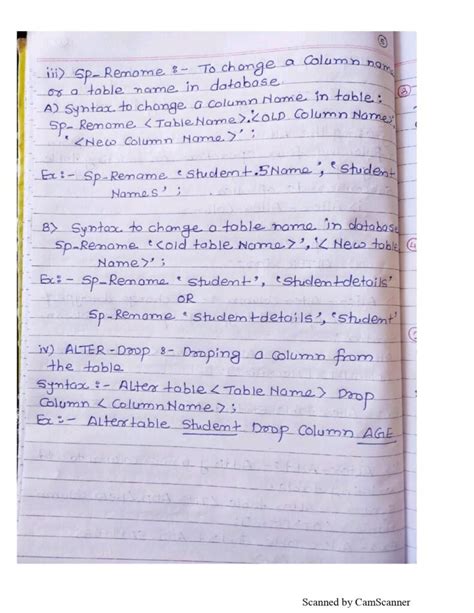 5
iii) Sp_Rename :- To change a column name
or a table name in database
A) Syntax to change a column Name in table:
Sp_Rename <TableName>.<OLD Column Name>'
'<New Column Name>';
Ex:- Sp_Rename 'Student.SName', 'Student
Names';
B) Syntax to change a table name in database
Sp_Rename '<old table Name>', '< New table
Name>';
Ex:- Sp_Rename 'Student', 'Studentdetails'
OR
Sp_Rename 'Studentdetails', 'Student'
iv) ALTER-Drop :- Droping a column from
the table
Syntax :- Alter table < Table Name> Drop
Column < ColumnName>;
Ex:- Altertable Student Drop Column AGE
Scanned by CamScanner